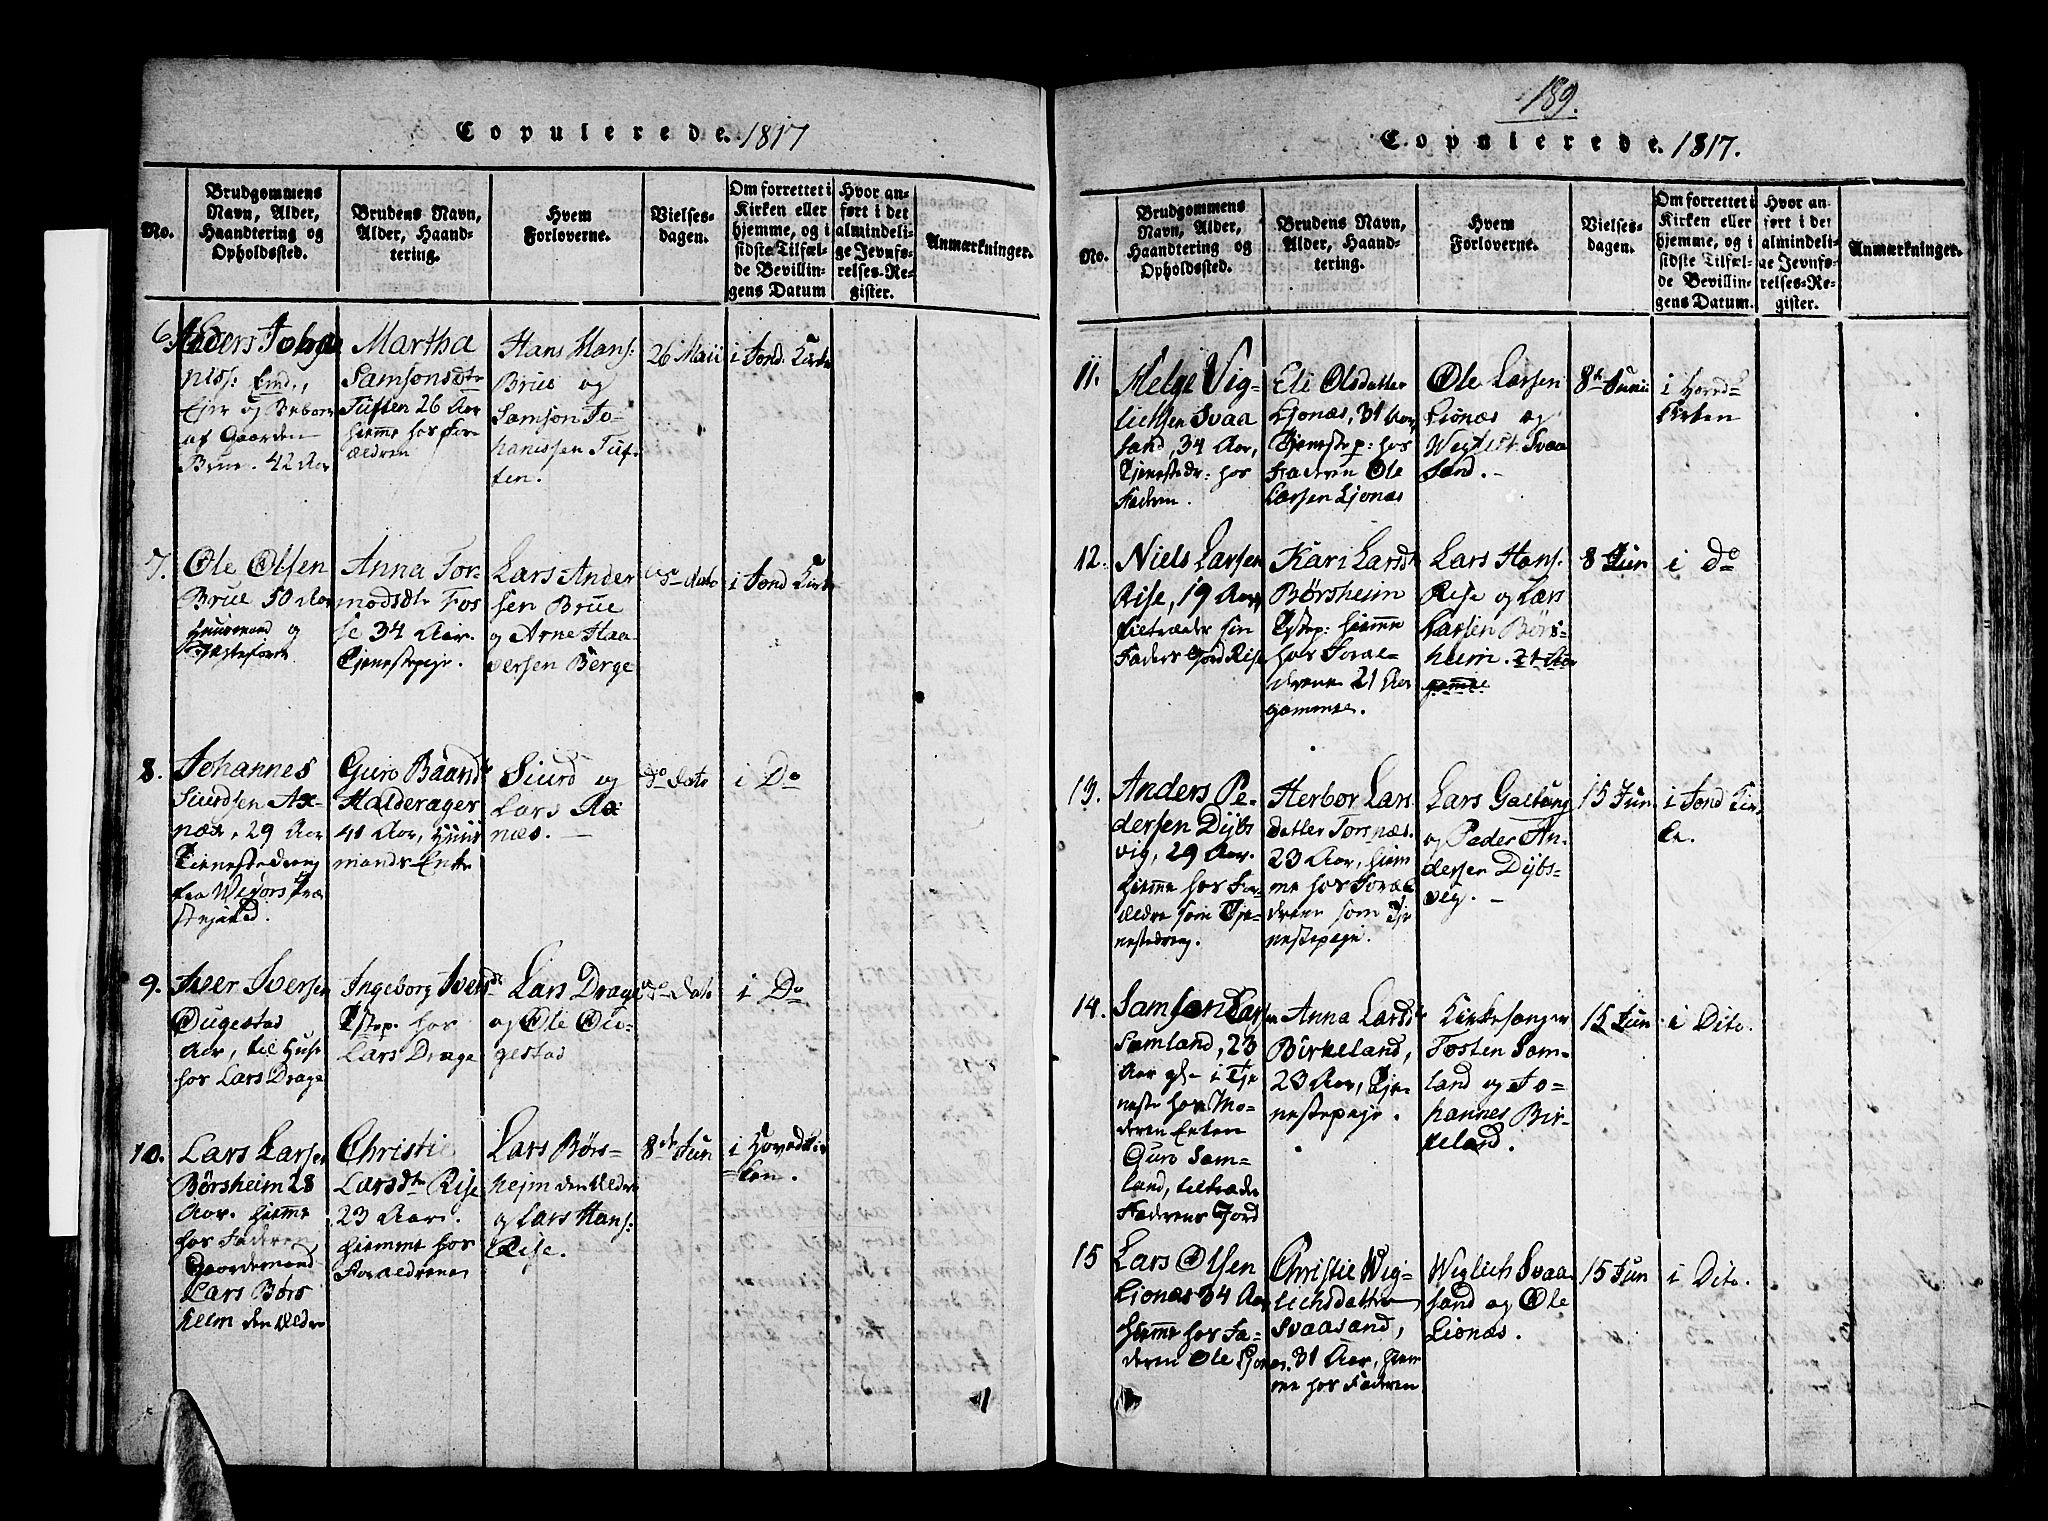 Copulerede. 1817
No.
Brudgommens
Navn, Alder,
Haandtering og
Opholdssted.
Brudens Navn,
Alder, Haand-
tering.
Hvem
Forloverne.
Vielses-
dagen.
Om forrettet i
Kirken eller
hjemme, og i
sidste Tilfæl-
de Bevillin-
gens Datum
Hvor an-
ført i det
almindeli-
ge Jevnfø-
relses-Re-
gister.
Anmærkninger.
6.
Anders Joha
niss:
Ejer og Beboer
af Gaarden
Brue. 42 Aar
Martha
Samsonsdtr
Tuften 26 Aar
hiemme hos For
ældren
Hans Hans:
Brue og
Samson Jo-
hanissen Tuf-
ten.
26 Maii
i Jond: Kirke
7.
Ole Olsen
Brue 50 Aar
Huusmand og
Anna Tor-
modsdtr Fos
se 34 Aar.
Tjenestepige.
Lars Ander
sen Brue
og Arne Haa
versen Berge
dato
i Jond Kirke
8.
Johannes
Siurdsen Ax-
næs, 29 Aar
Tienestedreng
fra Wigørs Præ
stegield.
Guro Baardsdr
Halderager
41 Aar, Huus
mands Enke
Siurd og
Lars Ax-
næs.
do dato
i Do
9.
Iver Iversen
Øugestad
Aar, til Huse
hos Lars Drage
Ingeborg Iversdr
Tstep. hos
Lars Drage
Lars Drage
og Ole Øu-
gestad
do dato
i Do
10.
Lars Larsen
Børsheim 28
Aar. hiemme
hos Faderen,
Gaardmand
Lars Børs
heim den Ældre
Christie
Larsdtr Rise
23 Aar.
hiemme hos
Forældrene
Lars Børs-
hejm den Ældre
og Lars Hans:
Rise.
8de Jun
i Hovedkir
=ken.
189.
Copulerede. 1817.
No.
Brudgommens
Navn, Alder,
Haandtering og
Opholdssted.
Brudens Navn,
Alder, Haand-
tering.
Hvem
Forloverne.
Vielses-
dagen.
Om forrettet i
Kirken eller
hjemme, og i
sidste Tilfæl-
de Bevillin-
gens Datum.
Hvor an-
ført i det
almindeli-
ge Jevnfø-
relses-Re-
gister.
Anmærkninger.
11.
Helge Vig-
lichsen Svaa
sand, 34 Aar,
Tjenestedr: hos
Faderen.
Eli Olsdatter
Ljonæs, 31 Aar,
Tjenestep: hos
Faderen Ole
Larsen Ljonæs
Ole Larsen
Lionæs og
Svaa
sand. -
8de Junii
i Hoved
Kirken
12.
Niels Larsen
Rise, 19 Aar,
tiltræder sin
Faders Jord Rise
Kari Larsdtr
Børsheim
Tstep: hiemme
hos Foræl-
drene 21 Aar
gammel.
Lars Hans:
Rise og Lars
Larsen Børs-
heim.
8 Jun
i Do
13.
Anders Pe-
dersen Dybs
vig, 29 Aar.
hiemme hos For-
ældre som Tje-
nestedreng.
Herbor Lars
datter Torsnæs.
23 Aar, hiem
me hos Foræl
drene som Tje
nestepige.
Lars Galtung
og Peder An-
dersen Dybs-
vig. -
15 Jun
i Jond Kir
ke.
14.
Samson Larsen
Samland, 23
Aar i Tje
neste hos Mo-
deren Enken
Guro Sam-
land, tiltræder
Faderens Jord
Anna Larsdtr
Birkeland,
23 Aar, Tje-
nestepige.
Kirkesanger
Tosten Sam-
land og Jo-
hannes Bir-
keland.
15 Jun
i Dito.
15
Lars Olsen
Lionæs 34 Aar
hiemme hos Fa-
deren Ole Ljonæs
Christie Wig-
lichsdatter
Svaasand,
31 Aar, hiem
me hos Faderen
Wiglich Svaa
sand og Ole
Lionæs.
15 Jun
i Dito.